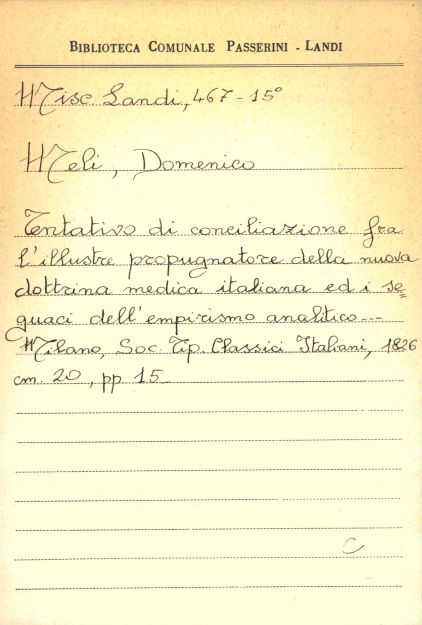 BIBLIOTECA COMUNALE PASSERINI - LANDI
Misc. Landi, 467-15°
Meli, Domenico
Tentativo di conciliazione fra
l'illustre propugnatore della nuova
dottrina medica italiana ed i se=
guaci dell'empirismo analitico---
Milano, Soc. Tip. Classici Italiani, 1826
cm. 20, pp. 15
C